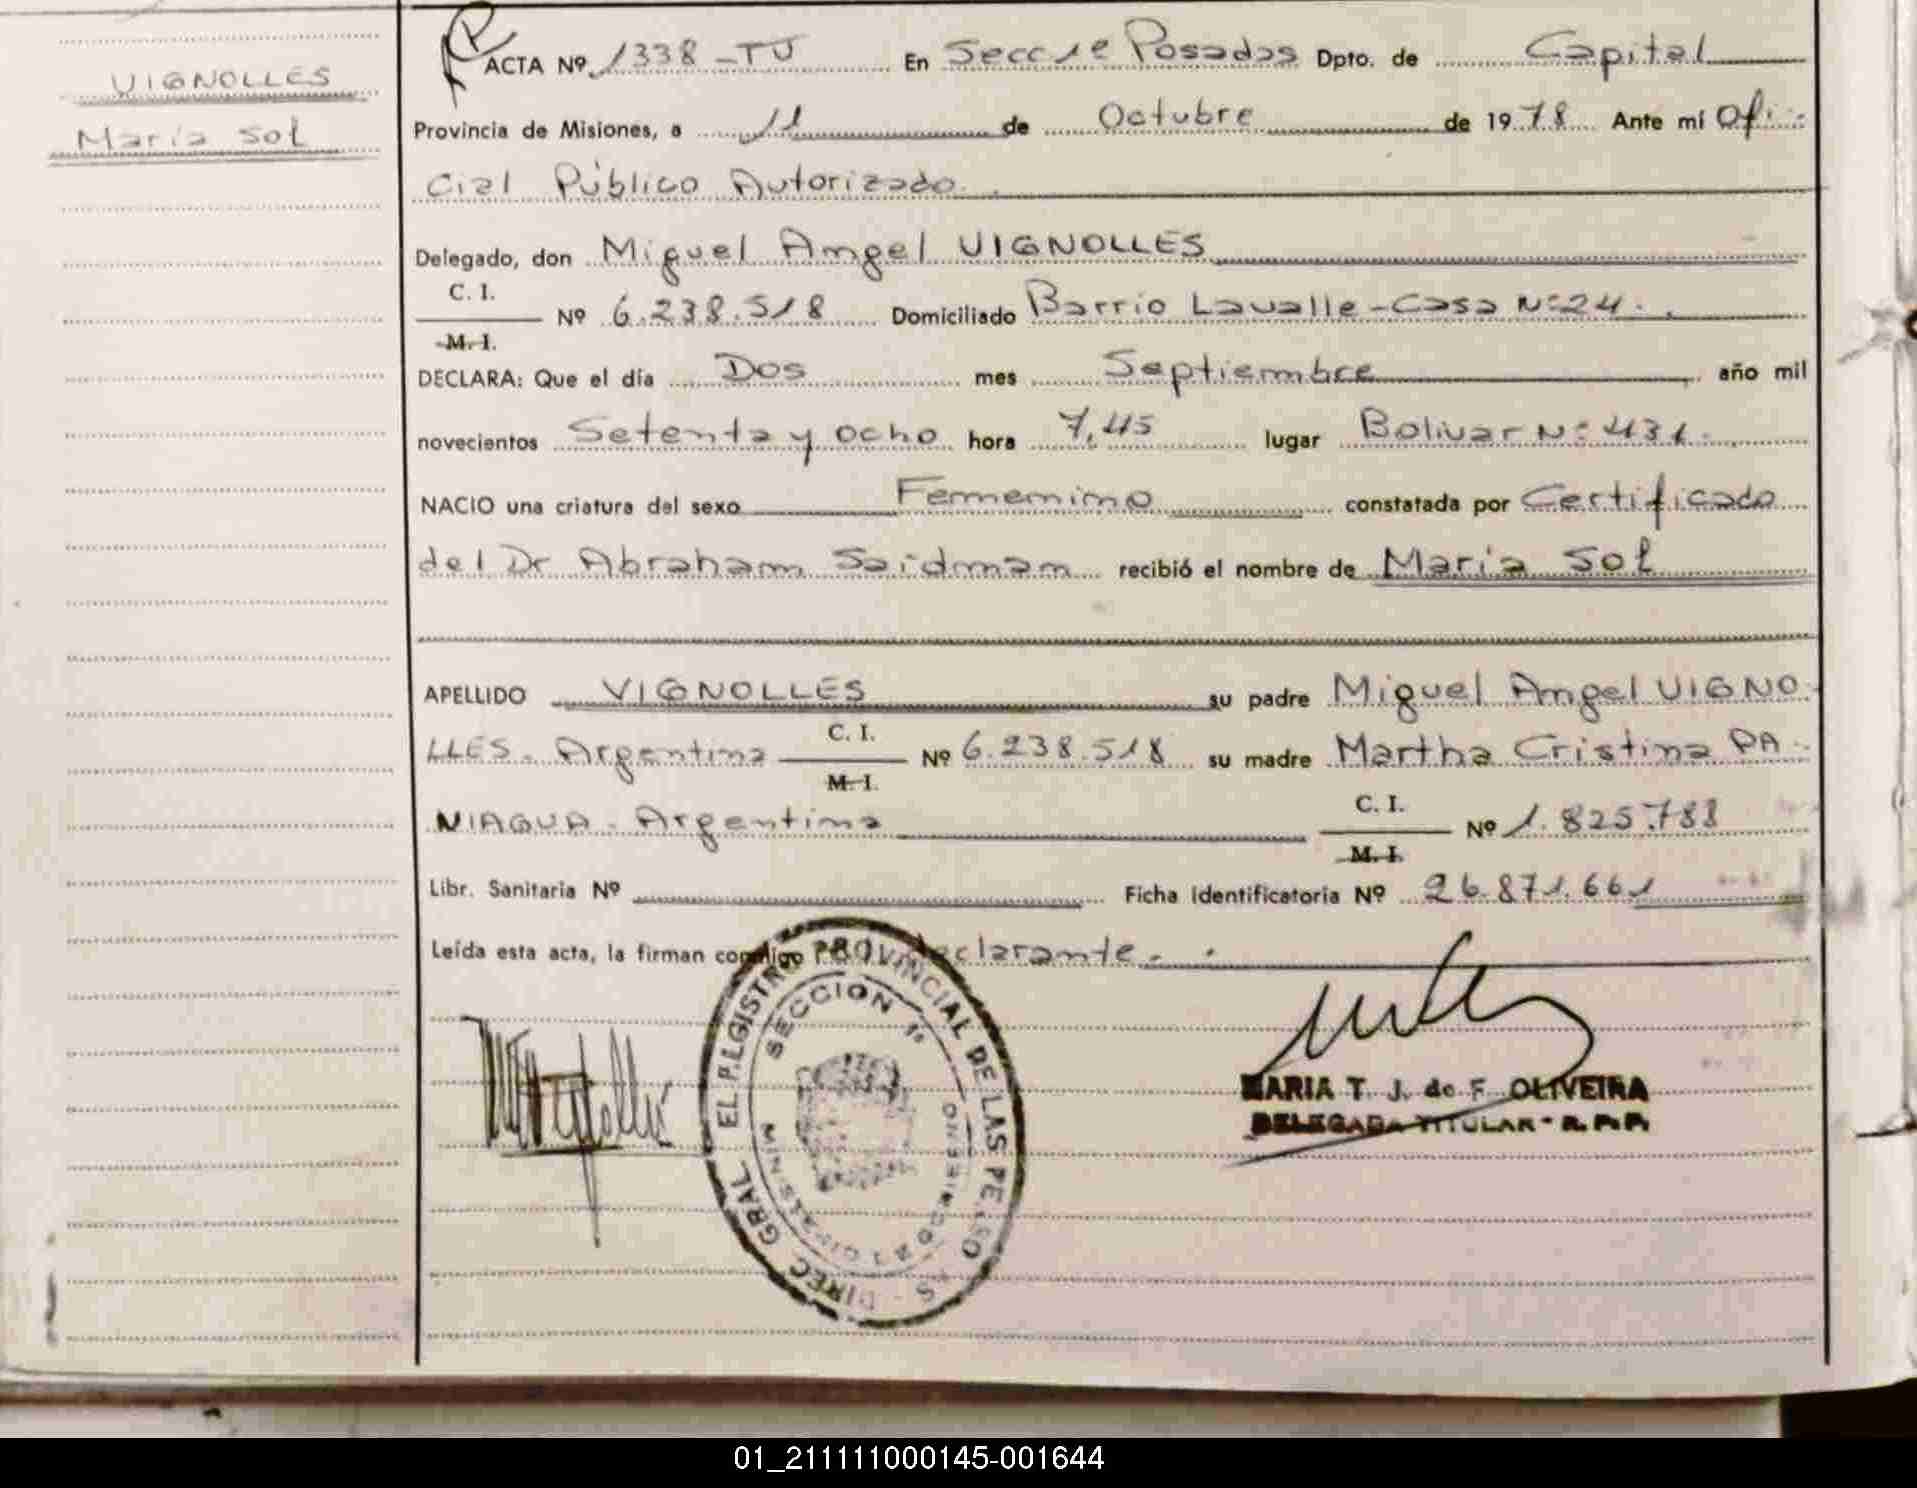 VIGNOLLES
Maria Sol
ACTA Nº 1338-TJ En Secc 1ª Posadas Dpto. de Capital
Provincia de Misiones, a 11 de Octubre de 1978 Ante mi Ofi-
cial Público Autorizado.
Delegado, don Miguel Angel VIGNOLLES
C. I.
Nº 6.238.518 Domiciliado Barrio Lavalle-Casa Nº 24.
M. I.
DECLARA: Que el día Dos mes Septiembre año mil
novecientos Setenta y ocho hora 7,45 lugar Bolivar Nº 431.
NACIO una criatura del sexo Femenino constatada por Certificado
del Dr Abraham Saidman recibió el nombre de Maria Sol
APELLIDO VIGNOLLES su padre Miguel Angel VIGNO-
LLES. Argentina C. I. Nº 6.238.518 su madre Martha Cristina PA-
M. I.
NIAGUA. Argentina C. I. Nº 1.825.788
M. I.
Libr. Sanitaria Nº Ficha Identificatoria Nº 26.871.661
Leída esta acta, la firman conmigo declarante.
DIREC GRAL EL REGISTRO PROVINCIAL DE LAS PERSONAS
SECCION 1ª
MARIA T. J. de F. OLIVEIRA
DELEGADA TITULAR - R. P. P.
01_211111000145-001644